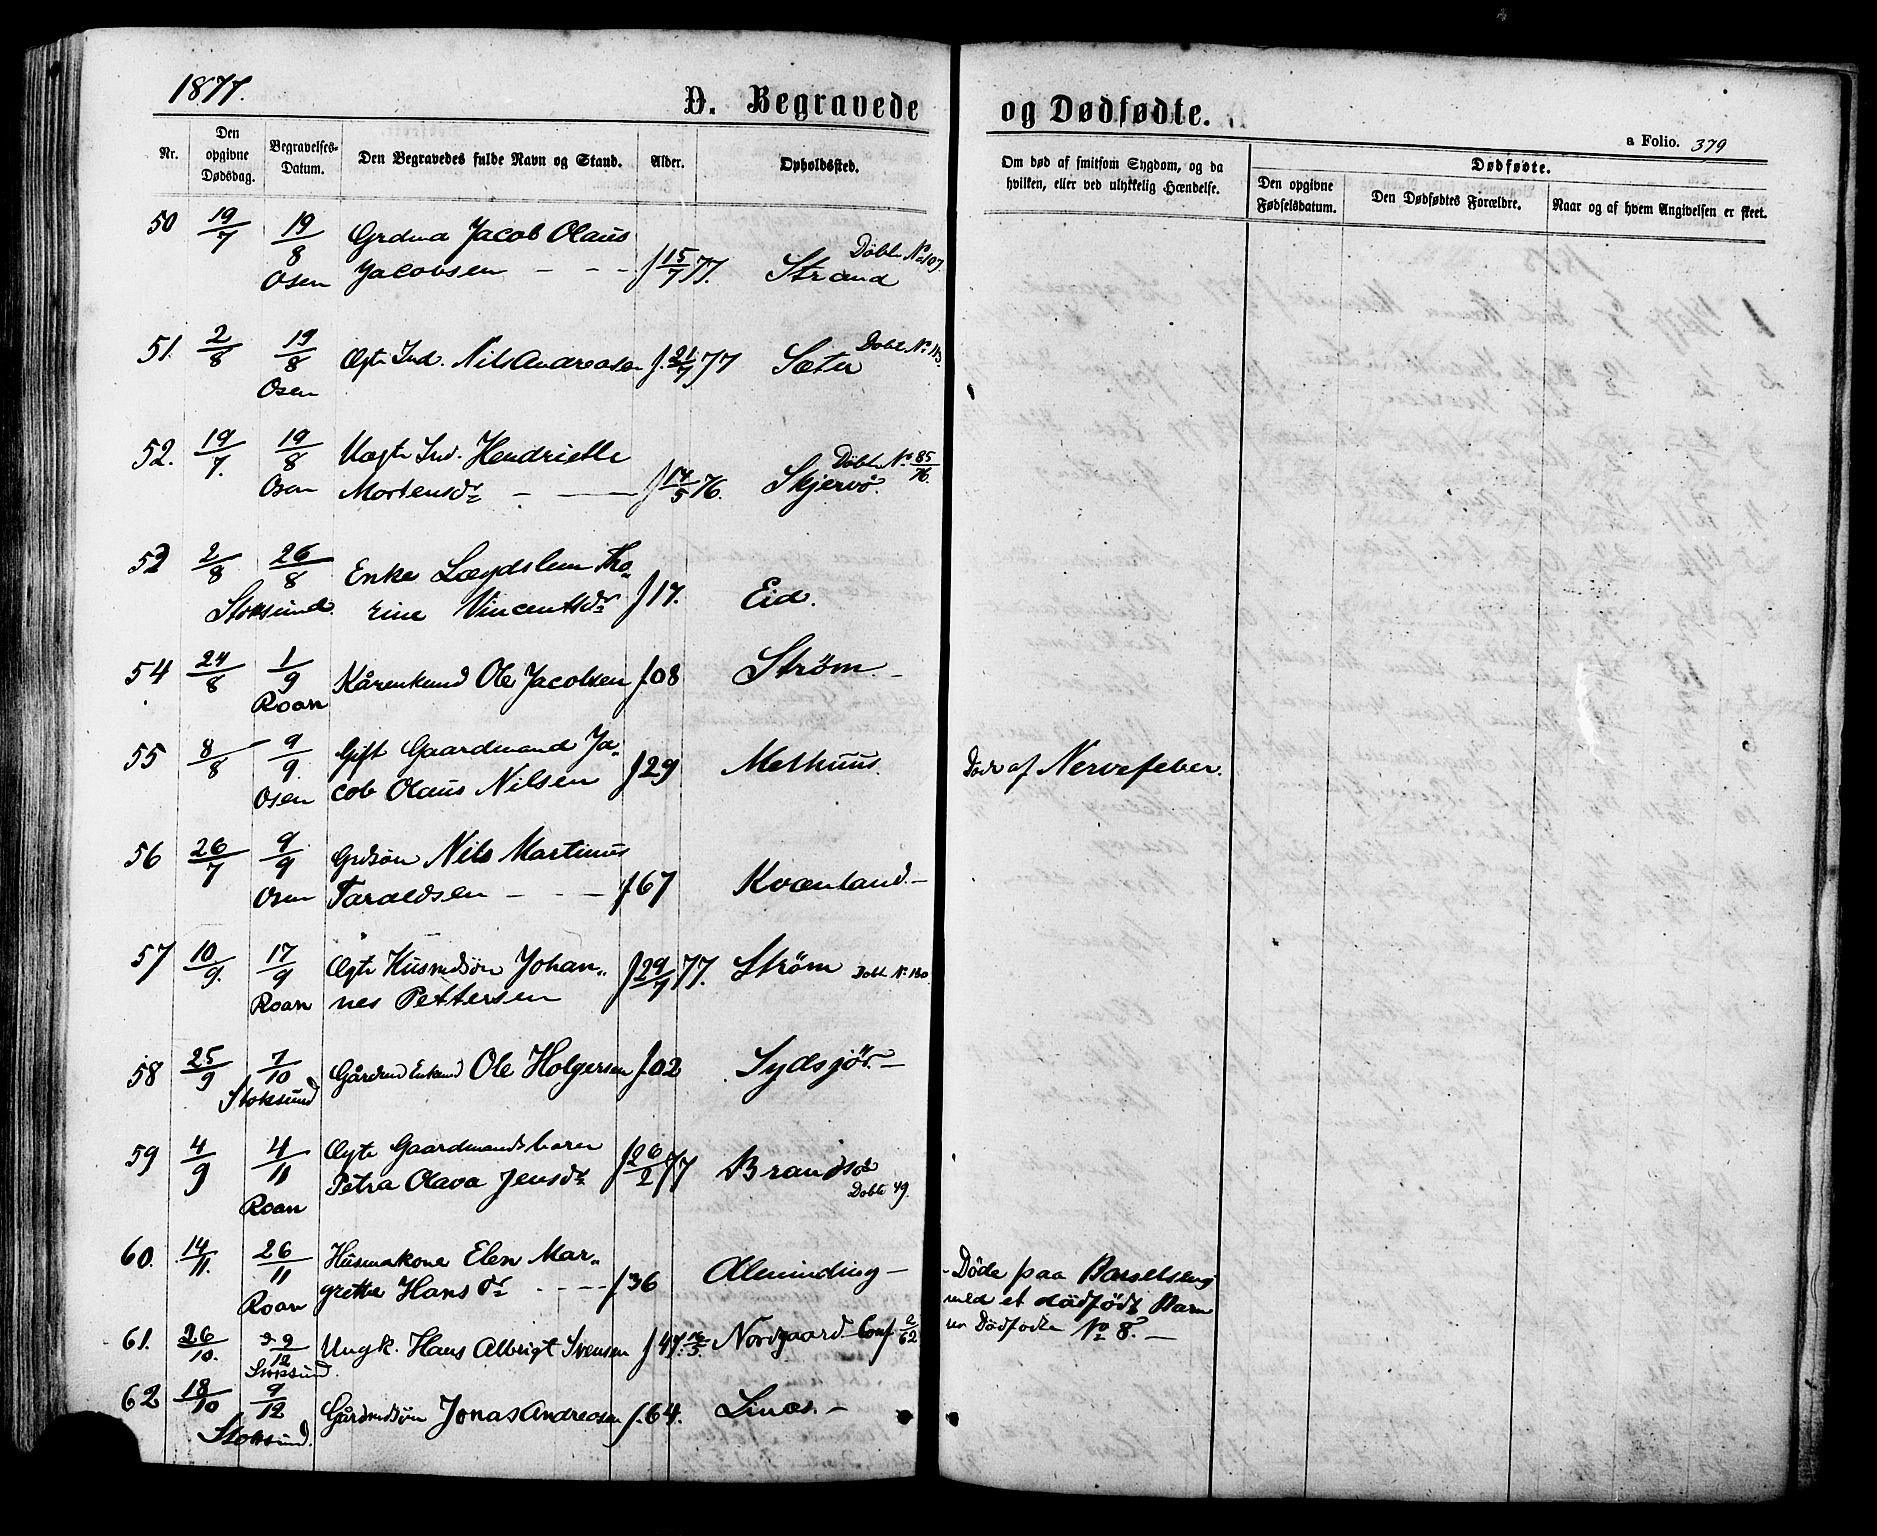 1877.
D. Begravede og Dødfødte.
a Folio. 379
Nr.
Den opgivne Dødsdag.
Begravelses-Datum.
Den Begravedes fulde Navn og Stand.
Alder.
Opholdssted.
Om død af smitsom Sygdom, og da hvilken, eller ved ulykkelig Hændelse.
Dødfødte.
Den opgivne Fødselsdatum.
Den Dødfødtes Forældre.
Naar og af hvem Angivelsen er skeet.
50 19/7 19/8 Grdmd Jacob Olaus Døbte No 107.
Osen Jacobsen - - - f 15/7 77. Strand
51. 2/8 19/8 Ægte Ind. Nils Andreasen f. 21/7 77 Sæter Døbte No 113
Osen
52. 19/7. 19/8 Uægte Ind. Hendriette Døbte No 85/76.
Osen Mortensdr - - f 14/5 76. Skjervö.
53 2/8 26/8 Enke Lægdslem Tho„
Stoksund. rine Vincentsdr f 17. Eid.
54 24/8 1/9 Kårenkmd Ole Jacobsen f 08 Strøm. -
Roan
55 8/8 9/9. Gift Gaardmand Ja„
Osen cob Olaus Nilsen f 29 Melhuus. Døde af Nervefeber.
56 26/7 9/9 Grdsøn Nils Martinus
Osen Taraldsen - - - f 67 Kvænland. -
57 10/9. 17/9 Ægte Husmdsøn Johan„ f 29/7 77. Strøm Døbt No 130
Roan nes Pettersen
58 25/9 7/10 Gårdmd Enkmd Ole Holgersen f. 02 Sydsjør. -
Stoksund
59 4/9 4/11 Ægte Gaardmandsbarn
Roan Petra Olava Jensdr f 26/2 77 Brandsø
Døbte 49.
60. 14/11. 26/11 Husmakone Elen Mar„
Roan grethe Hansdr - - - f 36 Alminding - - Døde paa Barselseng
med et dödfödt Barn
Dödfödte No 8. -
61. 26/10. 9/12 Ungk. Hans Albrigt Svensen f 47. Nordgaard Conf 2/62
Stoksund.
62 18/10 9/12 Gårdmdsøn Jonas Andreasen f. 64. Linæs. -
Stoksund.